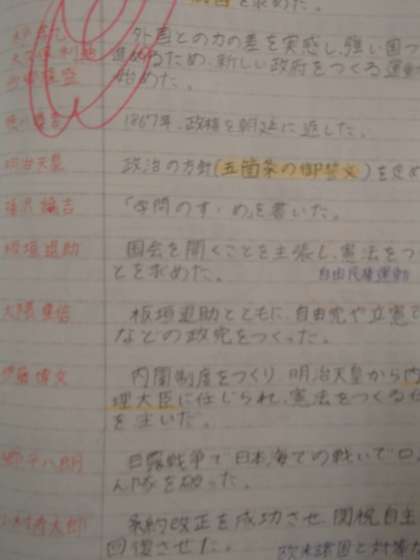 を求めた。
外国との力の差を実感し、強い国づ
大久保利通 進めるため、新しい政府をつくる運動
始めた。
徳川慶喜 1867年、政権を朝廷に返した。
明治天皇 政治の方針(五箇条の御誓文)を定め
福沢諭吉 「学問のすゝめ」を書いた。
板垣退助 国会を開くことを主張し、憲法をつ
とを求めた。 自由民権運動
大隈重信 板垣退助とともに、自由党や立憲
などの政党をつくった。
伊藤博文 内閣制度をつくり 明治天皇から内
理大臣に任じられ、憲法をつくる仕
を主いだ。
郷平八朗 日露戦争で日本海での戦いでロ
ん隊を破った。
小村寿太郎 条約改正を成功させ、関税自主
回復させた。 欧米諸国と対等な